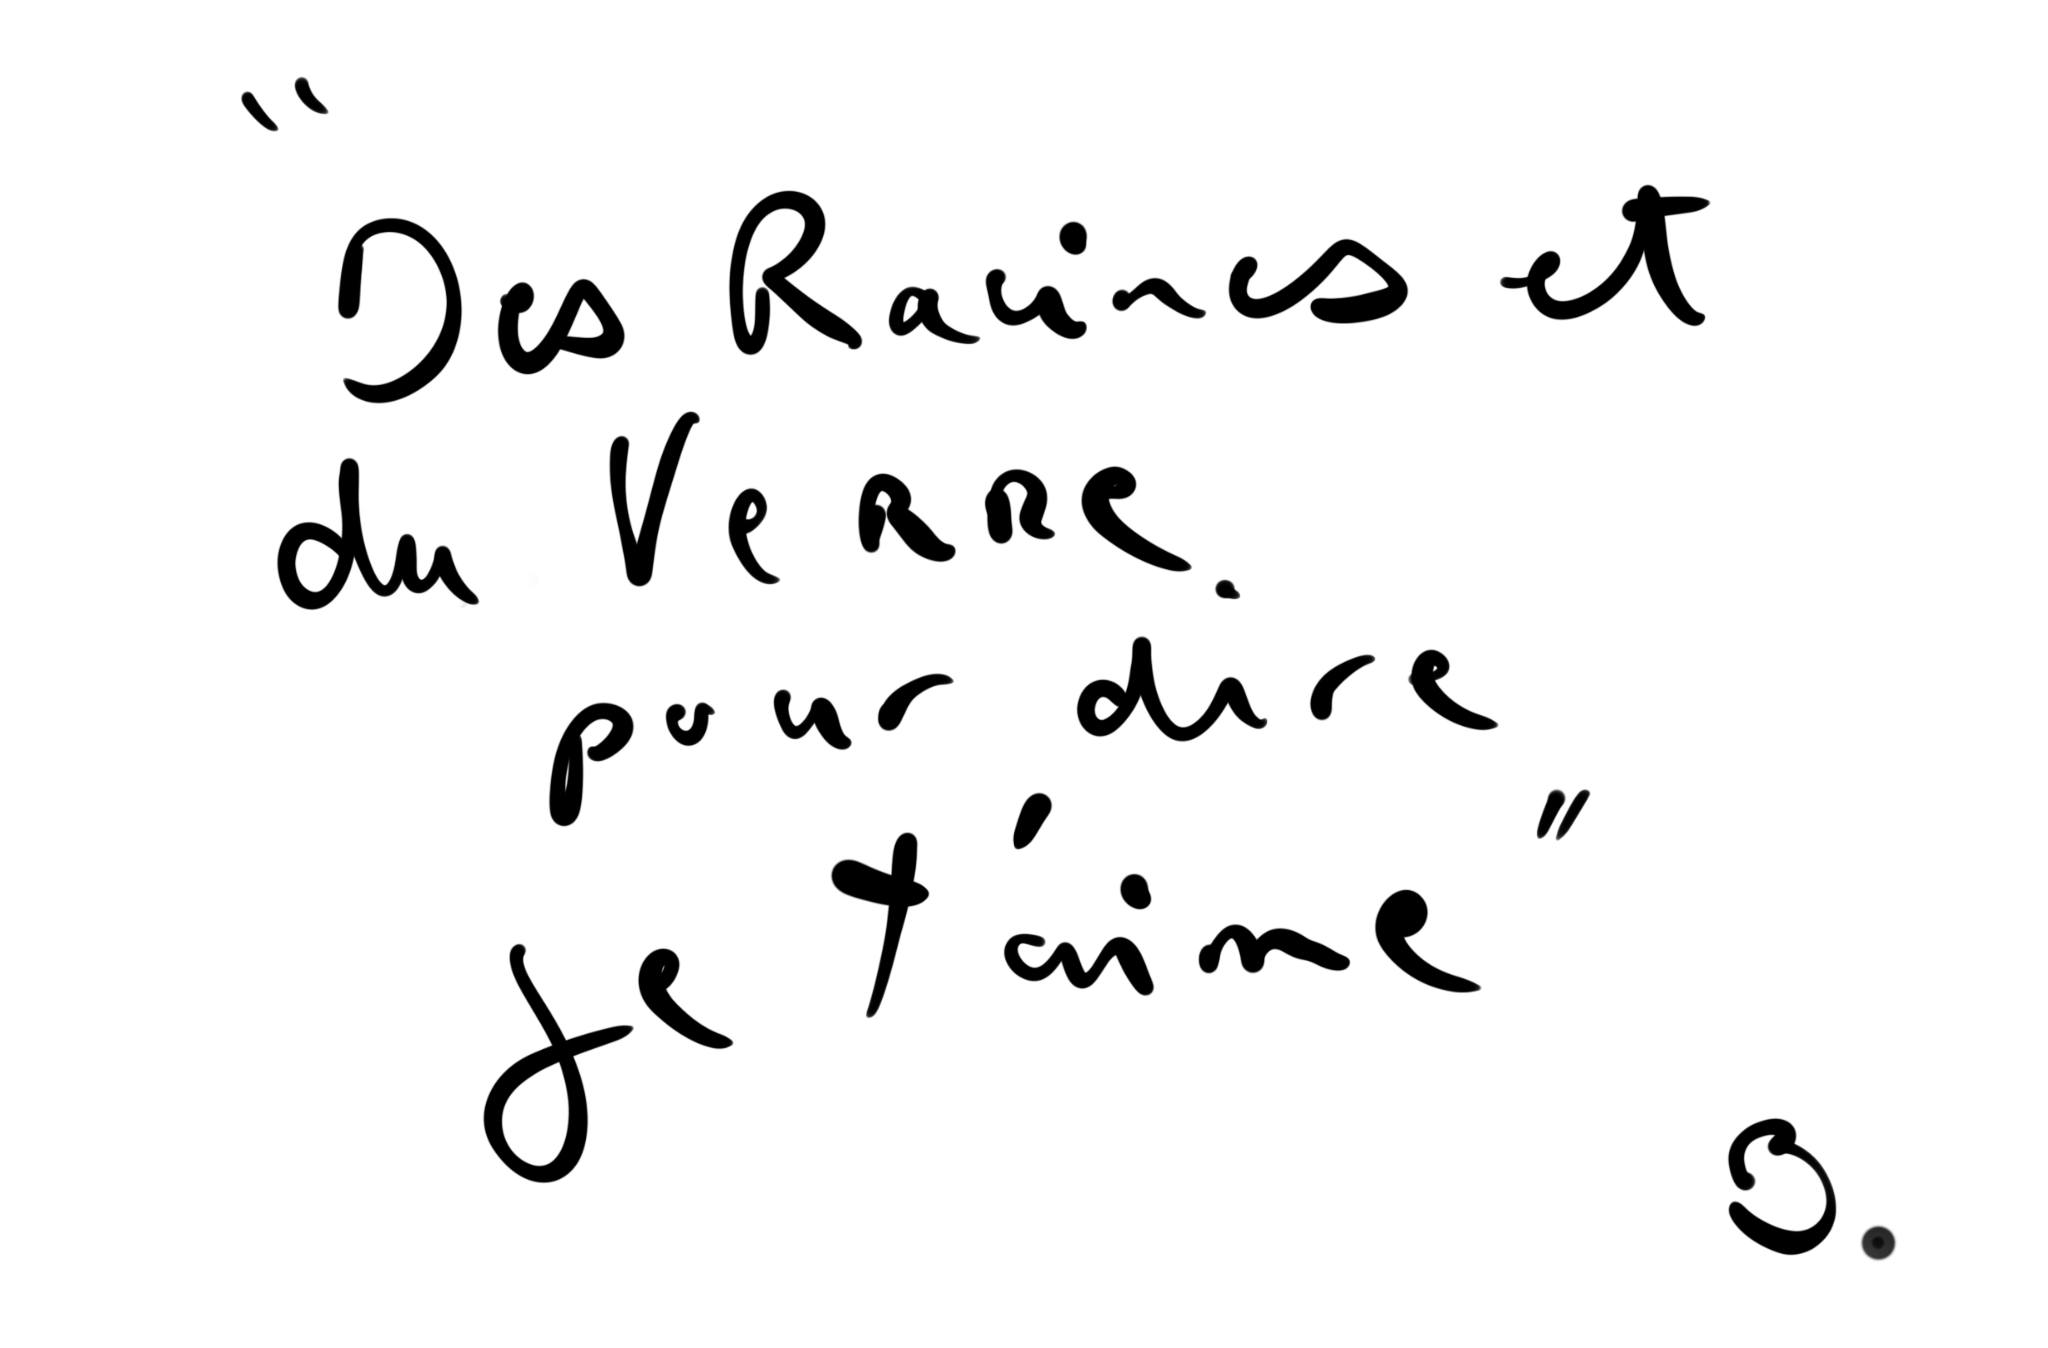 "
Des Racines et
du VeRRe.
pour dire
je t'aime"
S.